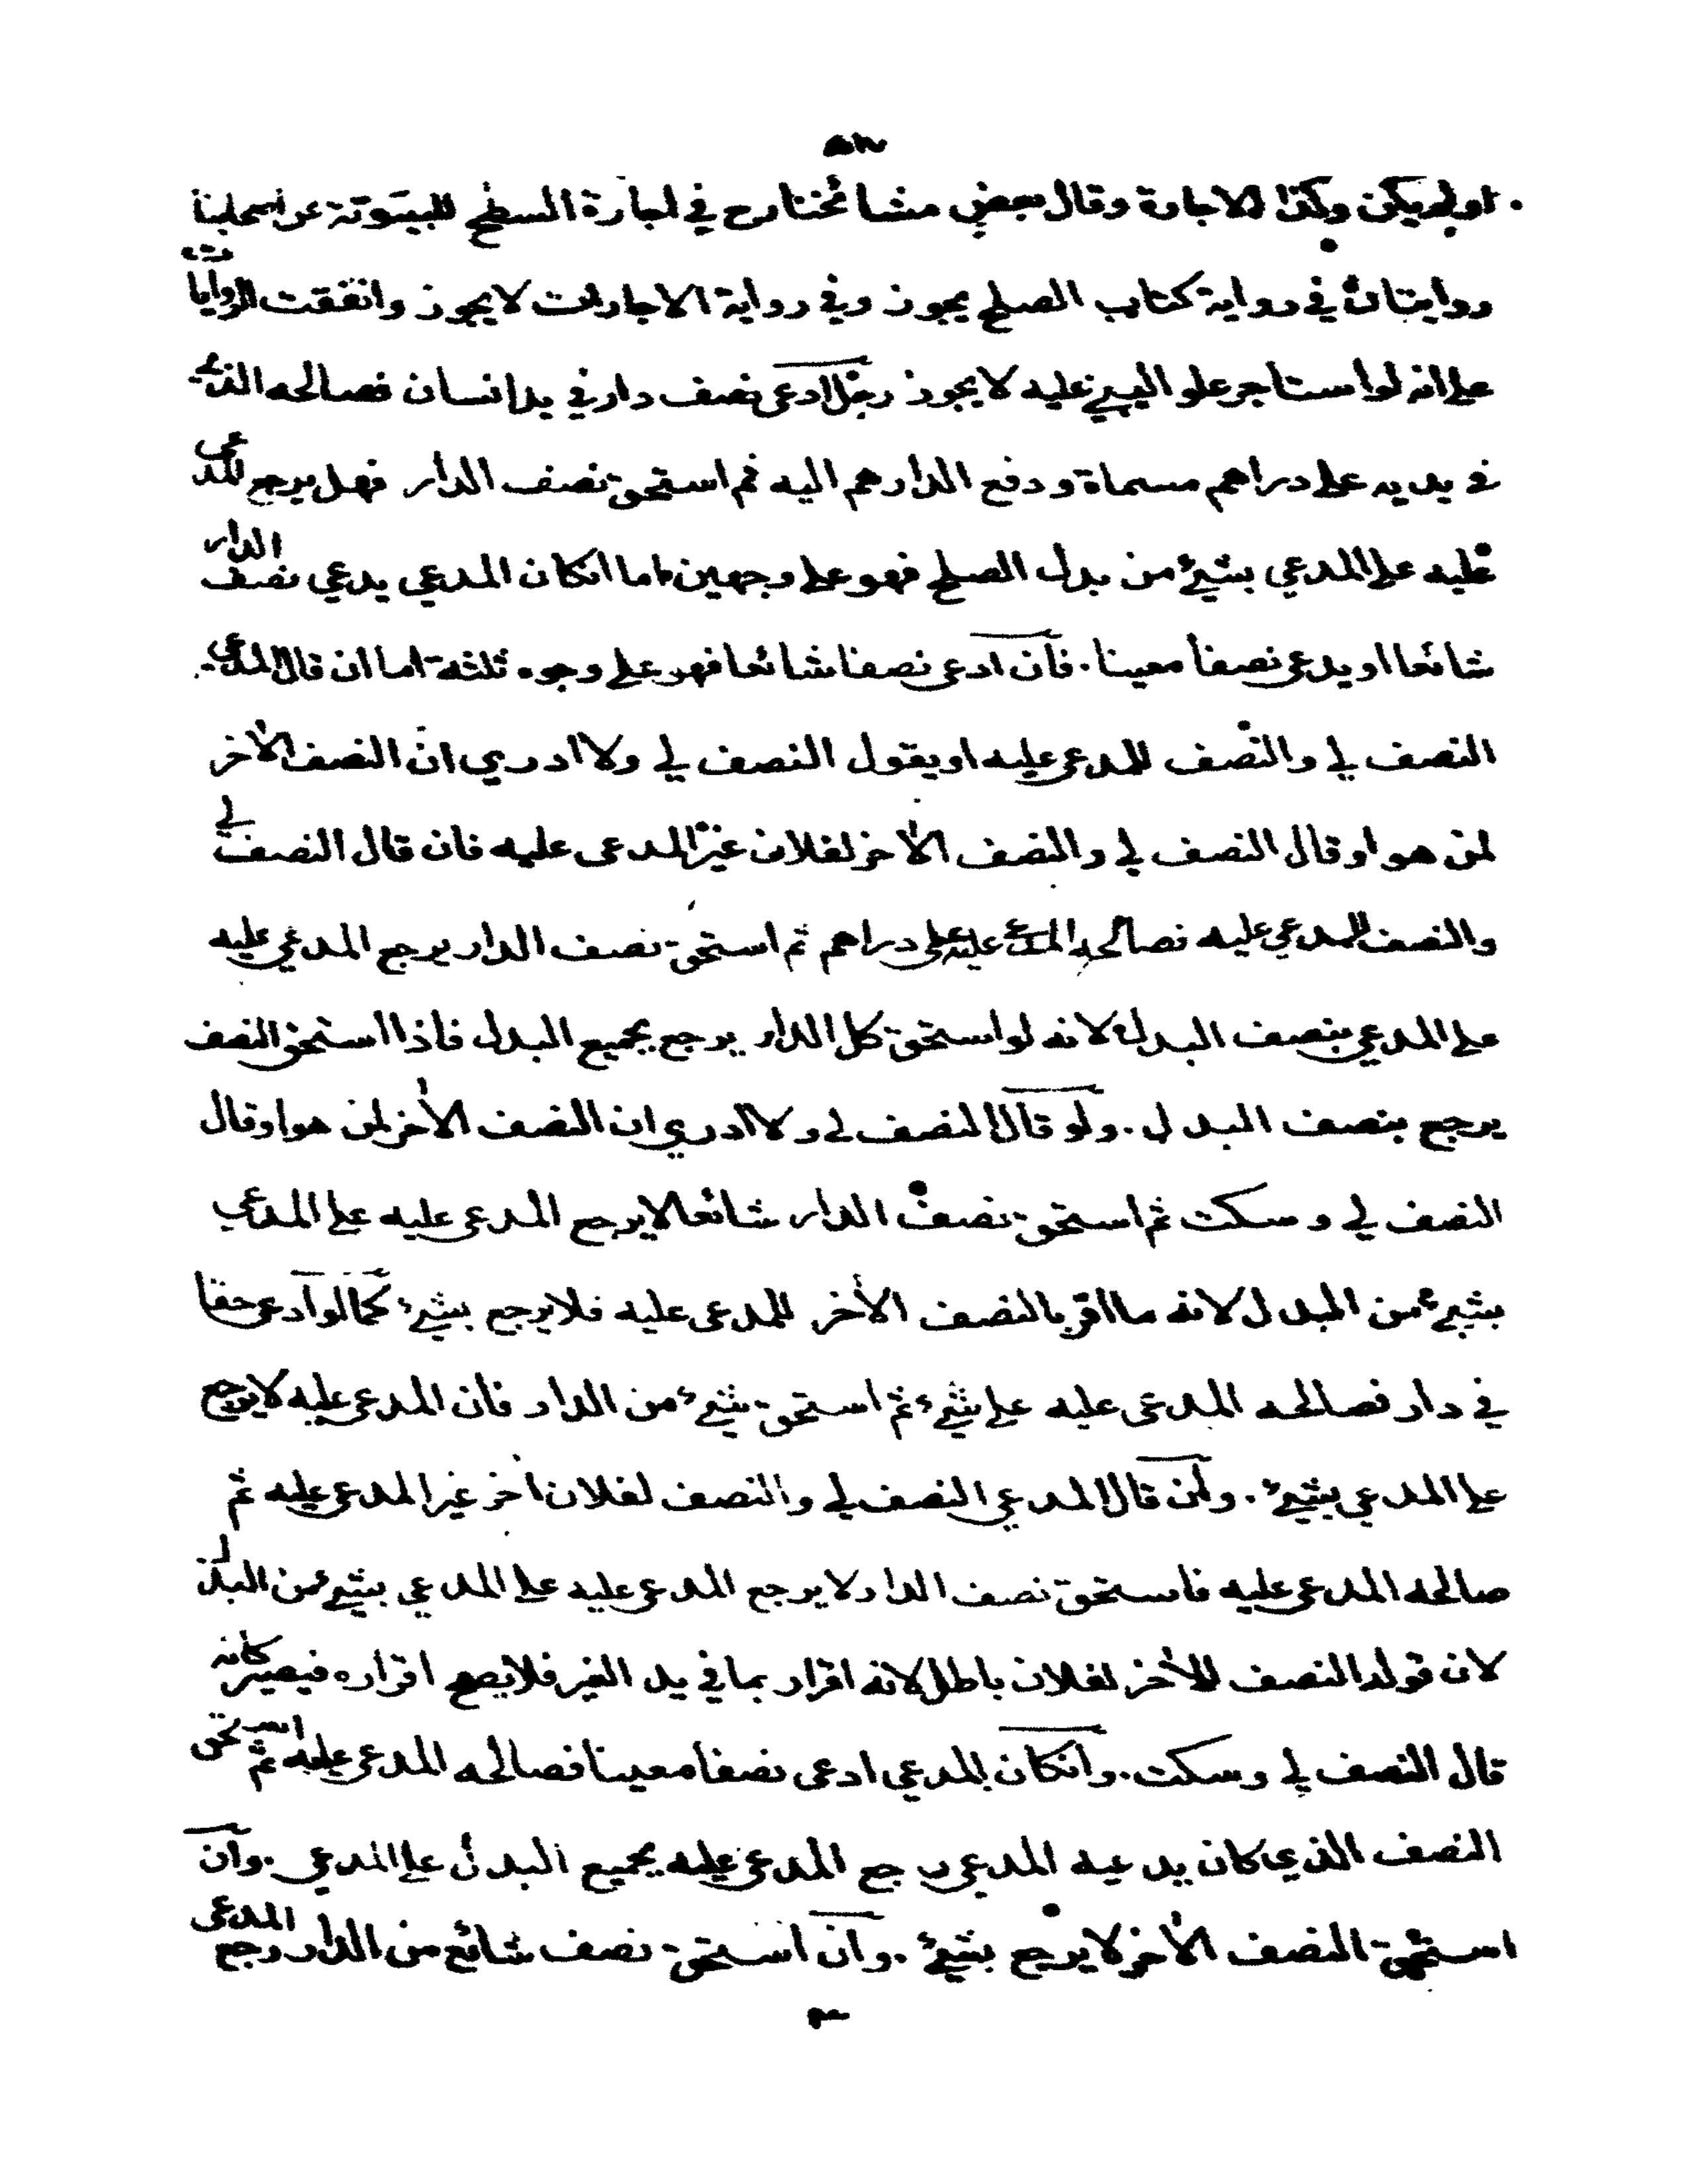 او لم يكن وكذا الاجارة وقال بعض مشائخنا رح في اجارة السطح للبيتوتة عن اصحابنا
روايتان في رواية كتاب الصلح يجوز وفي رواية الاجارات لا يجوز واتفقت الروايات
على انه لو استاجر علو البيت عليه لا يجوز رجل ادعى نصف دار في يد انسان فصالحه الذي
في يديه على دراهم مسماة ودفع الدارهم اليه ثم استحق نصف الدار فهل يرجع المدعى
عليه على المدعي بشيء من بدل الصلح فهو على وجهين اما انكان المدعي يدعي نصف الدار
شائعا او يدعى نصفا معينا . فان ادعى نصفا شائعا فهو على وجوه ثلثة اما ان قال المدعي
النصف لي والنصف للمدعى عليه او يقول النصف لي ولا ادري ان النصف الآخر
لمن هو او قال النصف لي والنصف الآخر لفلان غير المدعى عليه فان قال النصف لي
والنصف للمدعي عليه فصالحه المدعى عليه على دراهم ثم استحق نصف الدار يرجع المدعي عليه
على المدعي بنصف البدل لانه لو استحق كل الدار يرجع بجميع البدل فاذا استحق النصف
يرجع بنصف البدل . ولو قال النصف لي ولا ادري ان النصف الآخر لمن هو او قال
النصف لي وسكت ثم استحق نصف الدار شائعا لا يرجع المدعى عليه على المدعي
بشيء من البدل لانه ما اقر بالنصف الآخر للمدعى عليه فلا يرجع بشيء كما لو ادعى حقا
في دار فصالحه المدعى عليه على شيء ثم استحق شيء من الدار فان المدعى عليه لا يرجع
على المدعي بشيء . ولئن قال المدعي النصف لي والنصف لفلان آخر غير المدعى عليه ثم
صالحه المدعى عليه فاستحق نصف الدار لا يرجع المدعى عليه على المدعي بشيء من البدل
لان قوله النصف للآخر لفلان باطل لانه اقرار بما في يد الغير فلا يصح اقراره فيصير كانه
قال النصف لي وسكت . وانكان المدعي ادعى نصفا معينا فصالحه المدعى عليه ثم استحق
النصف الذي كان يدعيه المدعي يرجع المدعى عليه بجميع البدل على المدعي . وان
استحق النصف الآخر لا يرجع بشيء . وان استحق نصف شائع من الدار رجع المدعى